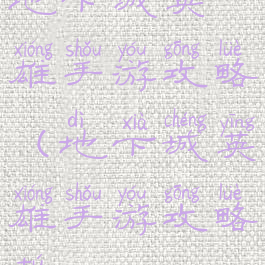 地下城英
xióng shǒu yóu gōng lüè
雄手游攻略
dì xià chéng yīng
(地下城英
xióng shǒu yóu gōng lüè
雄手游攻略